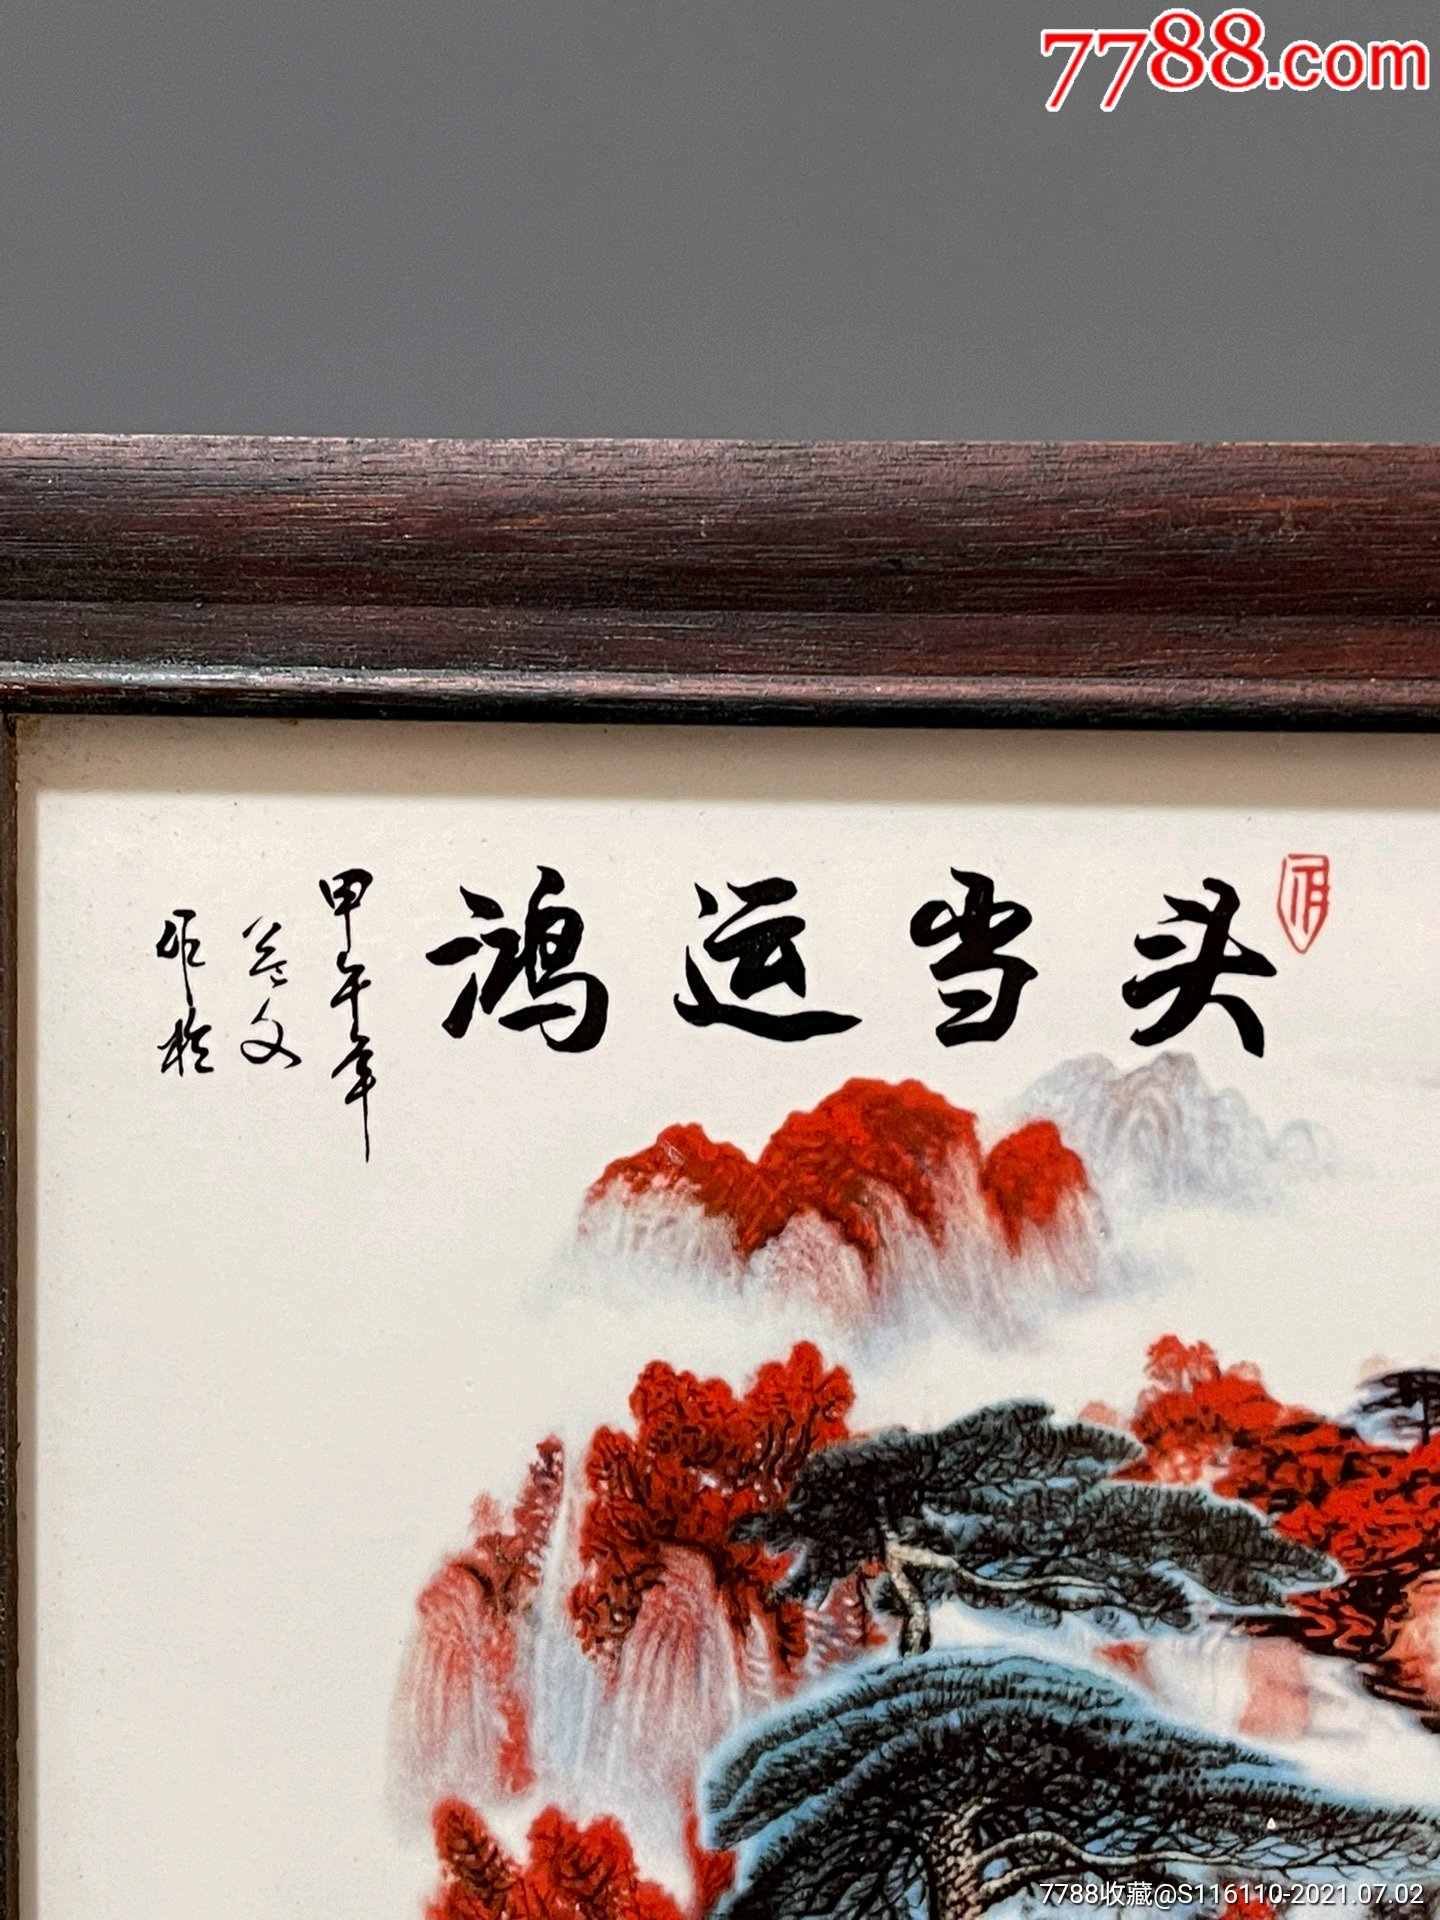 7788.com
鸿运当头
甲午年
益文
作於
7788收藏@S116110-2021.07.02